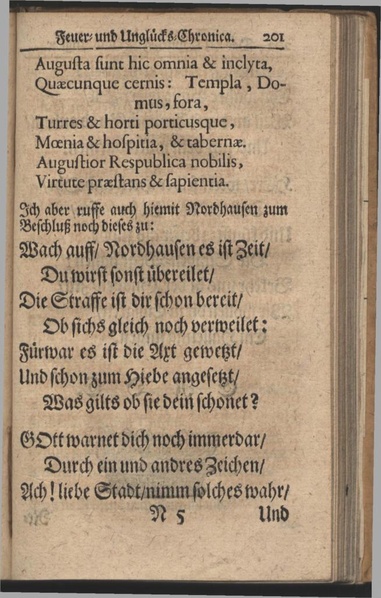 Feuer- und Unglücks-Chronica. 201
Augusta sunt hic omnia & inclyta,
Quæcunque cernis: Templa, Do-
mus, fora,
Turres & horti porticusque,
Mœnia & hospitia, & tabernæ.
Augustior Respublica nobilis,
Virtute præstans & sapientia.
Ich aber ruffe auch hiemit Nordhausen zum
Beschluß noch dieses zu:
Wach auff/ Nordhausen es ist Zeit/
Du wirst sonst übereilet/
Die Straffe ist dir schon bereit/
Ob sichs gleich noch verweilet:
Fürwar es ist die Axt gewetzt/
Und schon zum Hiebe angesetzt/
Was gilts ob sie dein schonet?
GOtt warnet dich noch immerdar/
Durch ein und andres Zeichen/
Ach! liebe Stadt/ nimm solches wahr/
N 5 Und